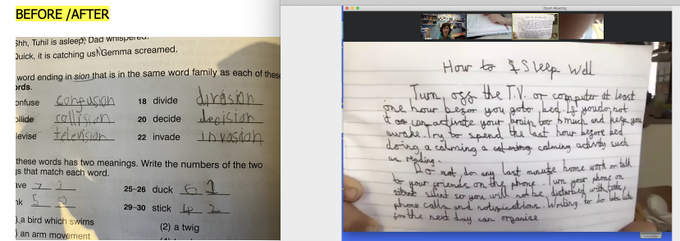 BEFORE /AFTER
Shh, Tuhil is asleep," Dad whispered.
Quick, it is catching us!" Gemma screamed.
word ending in sion that is in the same word family as each of these
rds.
onfuse confusion 18 divide division
ollide collision 20 decide decision
levise television 22 invade invasion
these words has two meanings. Write the numbers of the two
gs that match each word.
ave 7 3 25–26 duck 6 1
nk 5 29–30 stick 4 2
) a bird which swims (2) a twig
) an arm movement
How to Sleep Well
Turn off the T.V. or computer at least
one hour befor you goto bed. If you do not
it can activate your brain too much and keep you
awake. Try to spend the last hour before bed
doing a calming a calming activity such
as reading.
Do not do any last minute home work or talk
to your friends on the phone. Turn your phone on
silent so you will not be disturbed with
phone calls and notifications. Writing to do lists
for the next day can organise